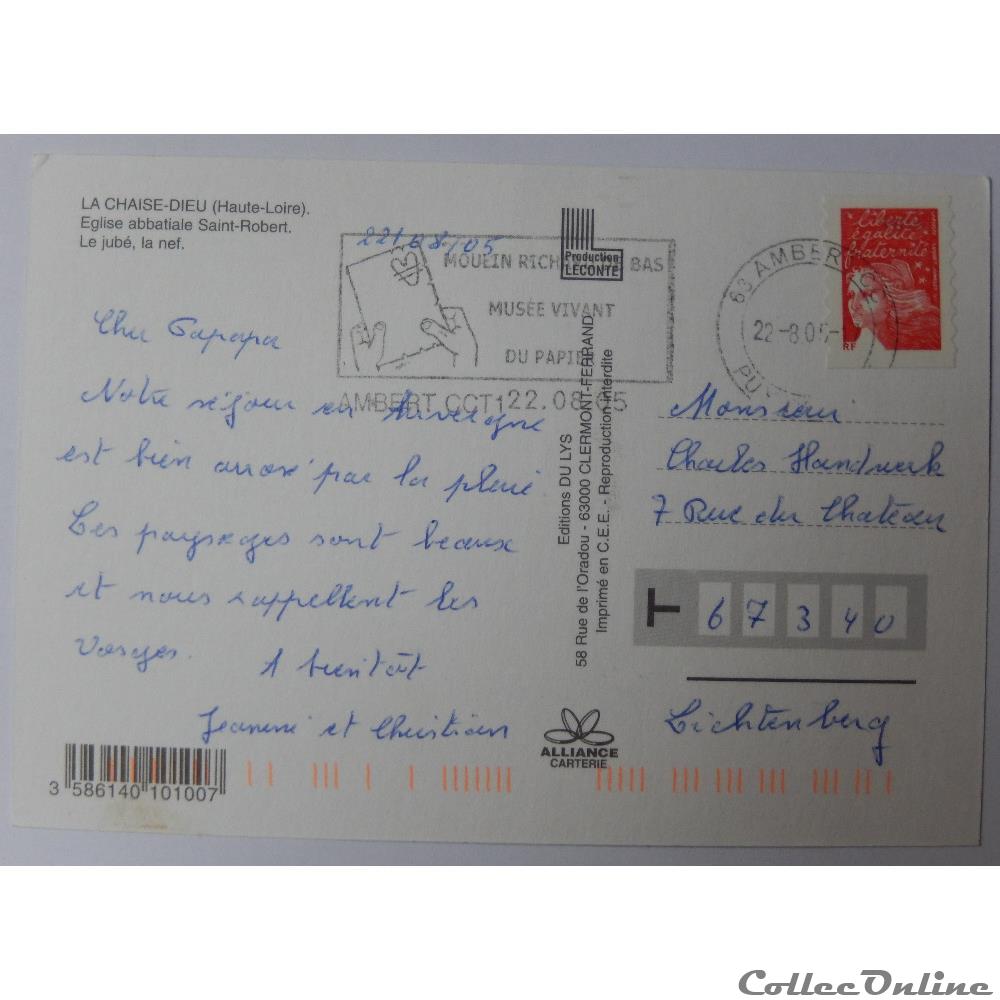 LA CHAISE-DIEU (Haute-Loire).
Eglise abbatiale Saint-Robert.
Le jubé, la nef.
22/08/05
MOULIN RICH BAS
MUSÉE VIVANT
DU PAPIER
AMBERT CCT1 22.08.05
Production
LECONTE
63 AMBERT
22-8.05
liberté
égalité
fraternité
RF
Cher Papapa
Notre séjour en Auvergne
est bien arrosé par la pluie.
Les paysages sont beaux
et nous rappellent les
Vosges.
A bientôt
Jeannine et Christian
Editions DU LYS
58 Rue de l'Oradou - 63000 CLERMONT-FERRAND
Imprimé en C.E.E. - Reproduction interdite
Monsieur
Charles Handwerk
7 Rue du Château
T 67340
Lichtenberg
ALLIANCE
CARTERIE
3 586140 101007
CollecOnline